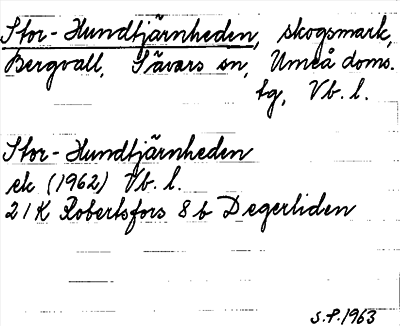 Stor-Hundtjärnheden, skogsmark,
Bergvall, Sävars sn, Umeå doms.
tg, Vb. l.
Stor-Hundtjärnheden
ek (1962) Vb. l.
21K Robertsfors 8b Degerliden
S.P.1963